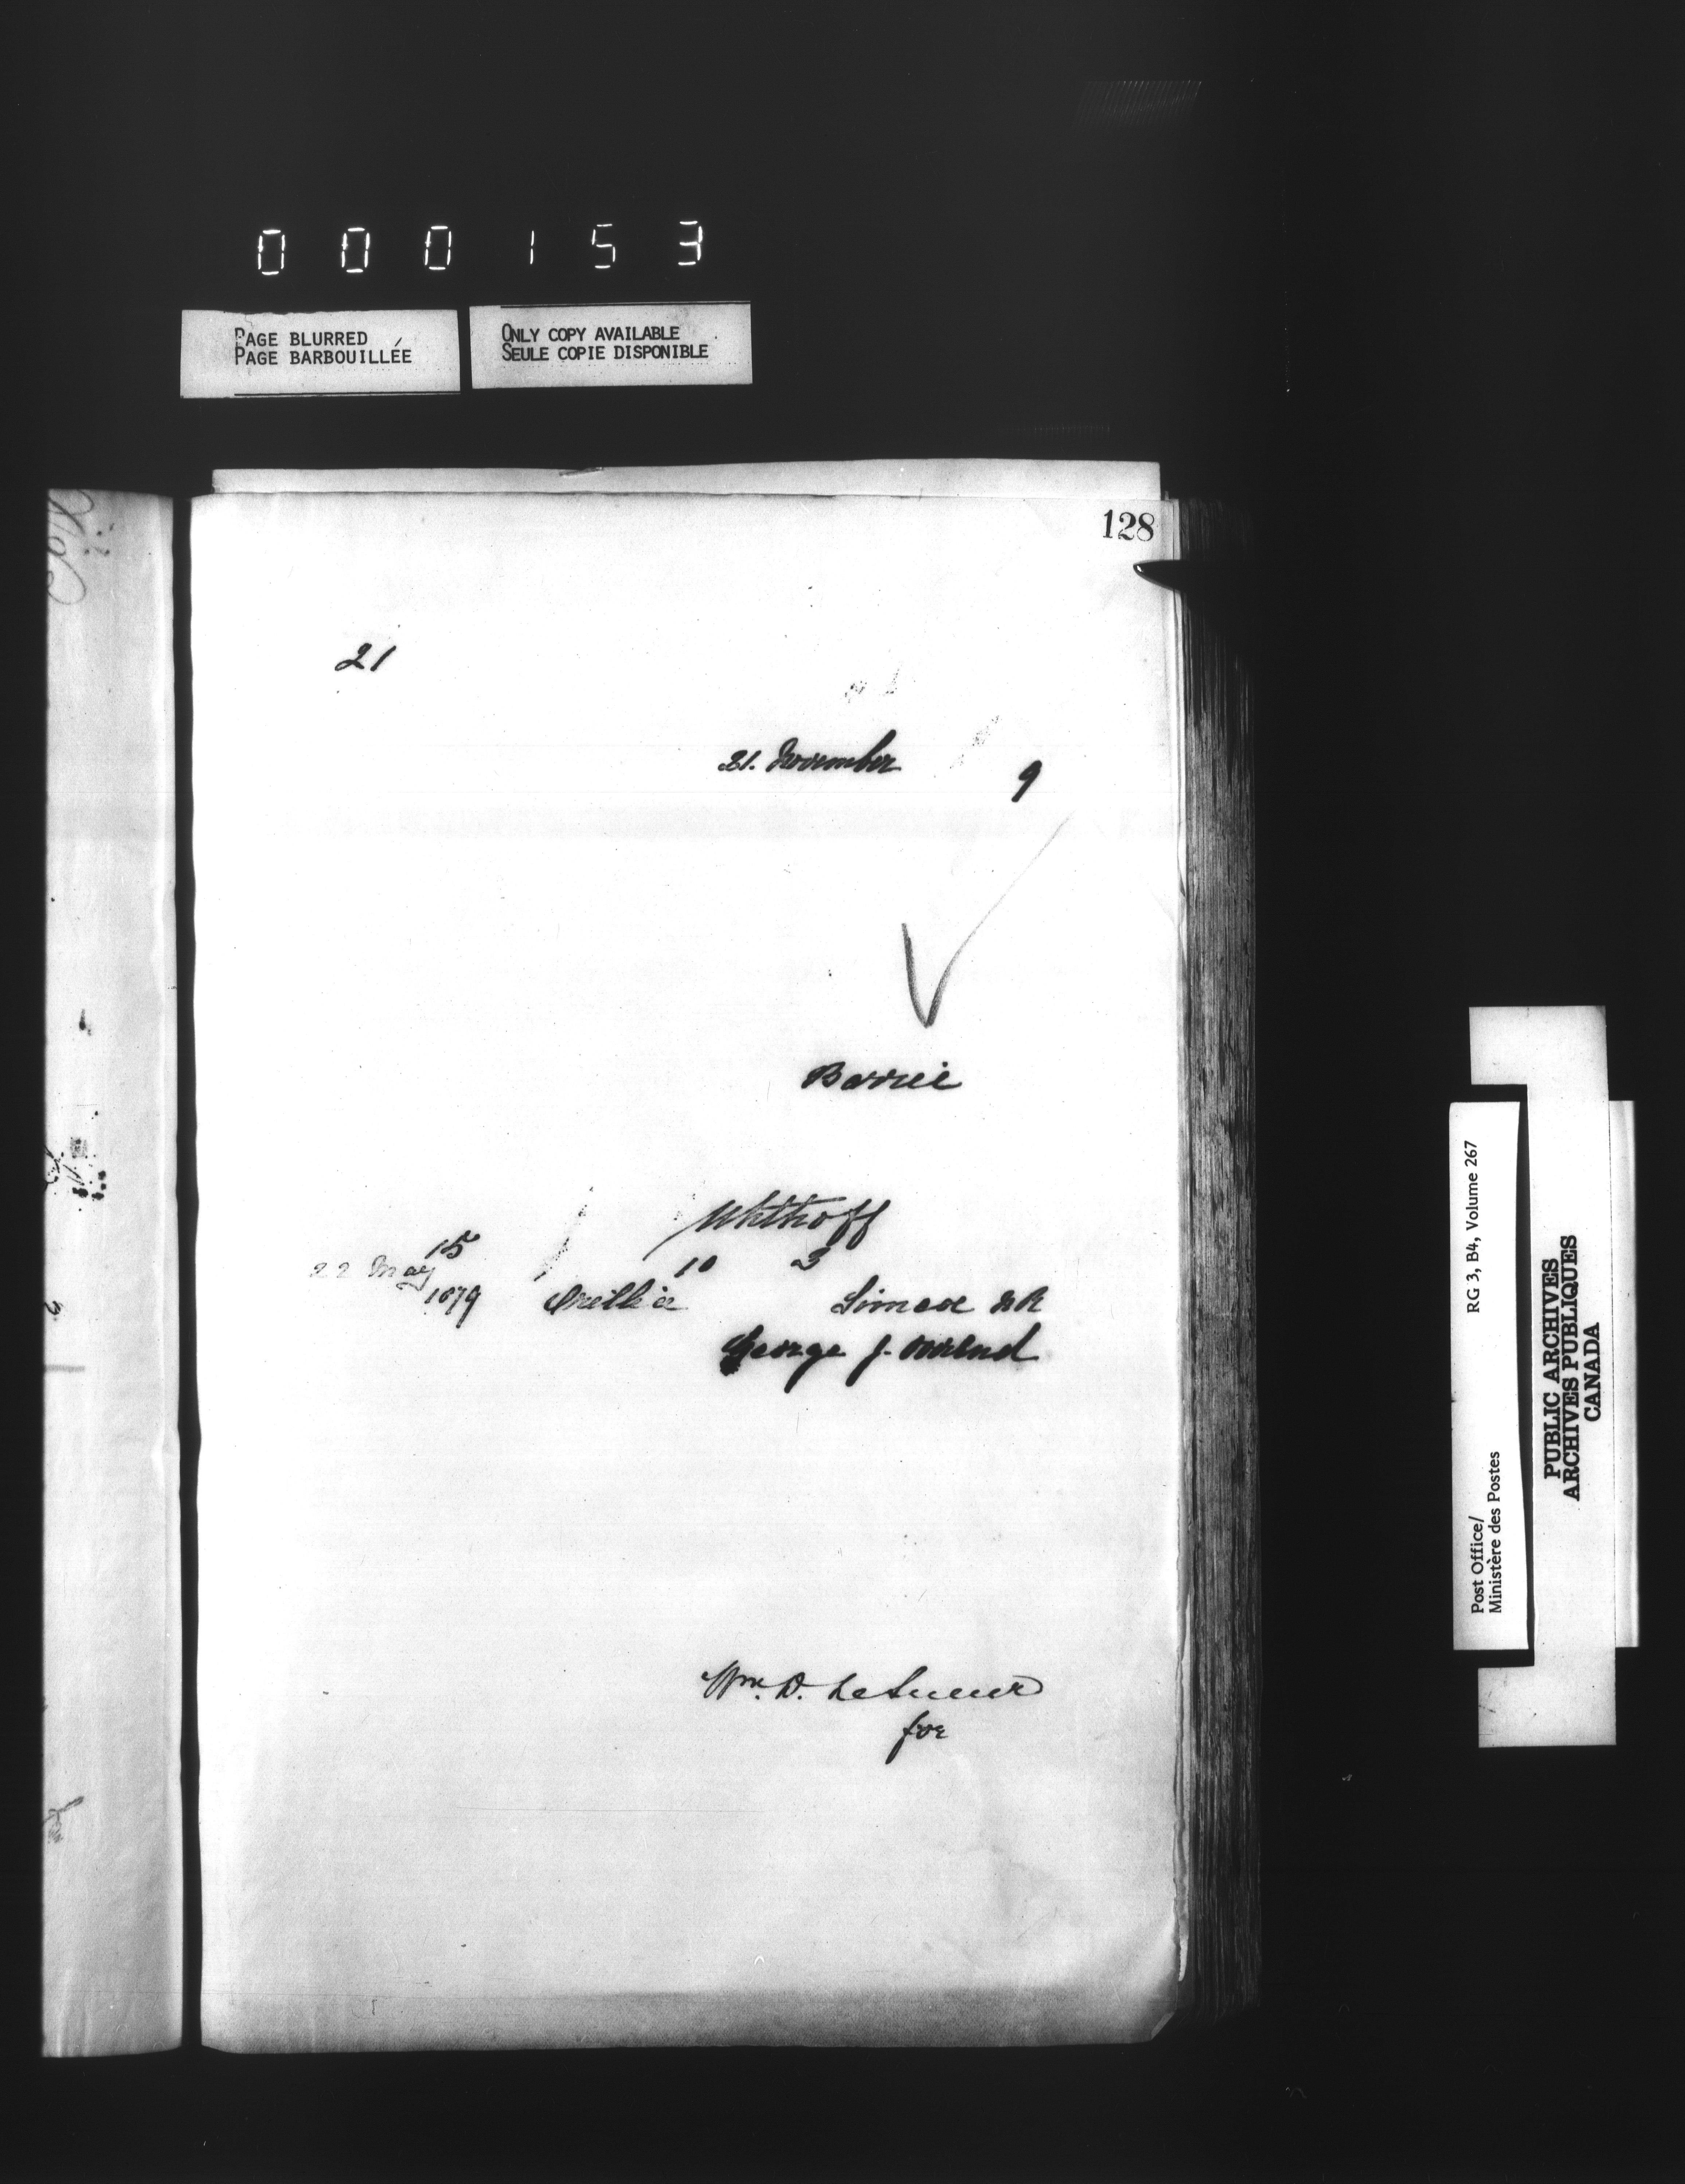 000153
PAGE BLURRED
PAGE BARBOUILLÉE
ONLY COPY AVAILABLE
SEULE COPIE DISPONIBLE
128
21
21. November 9
Barrie
Uhthoff
15 10 3
22 May
1879 Orillia Simcoe NR
George J.
Wm. D. LeSueur
for
RG 3, B4, Volume 267
Post Office/
Ministère des Postes
PUBLIC ARCHIVES
ARCHIVES PUBLIQUES
CANADA